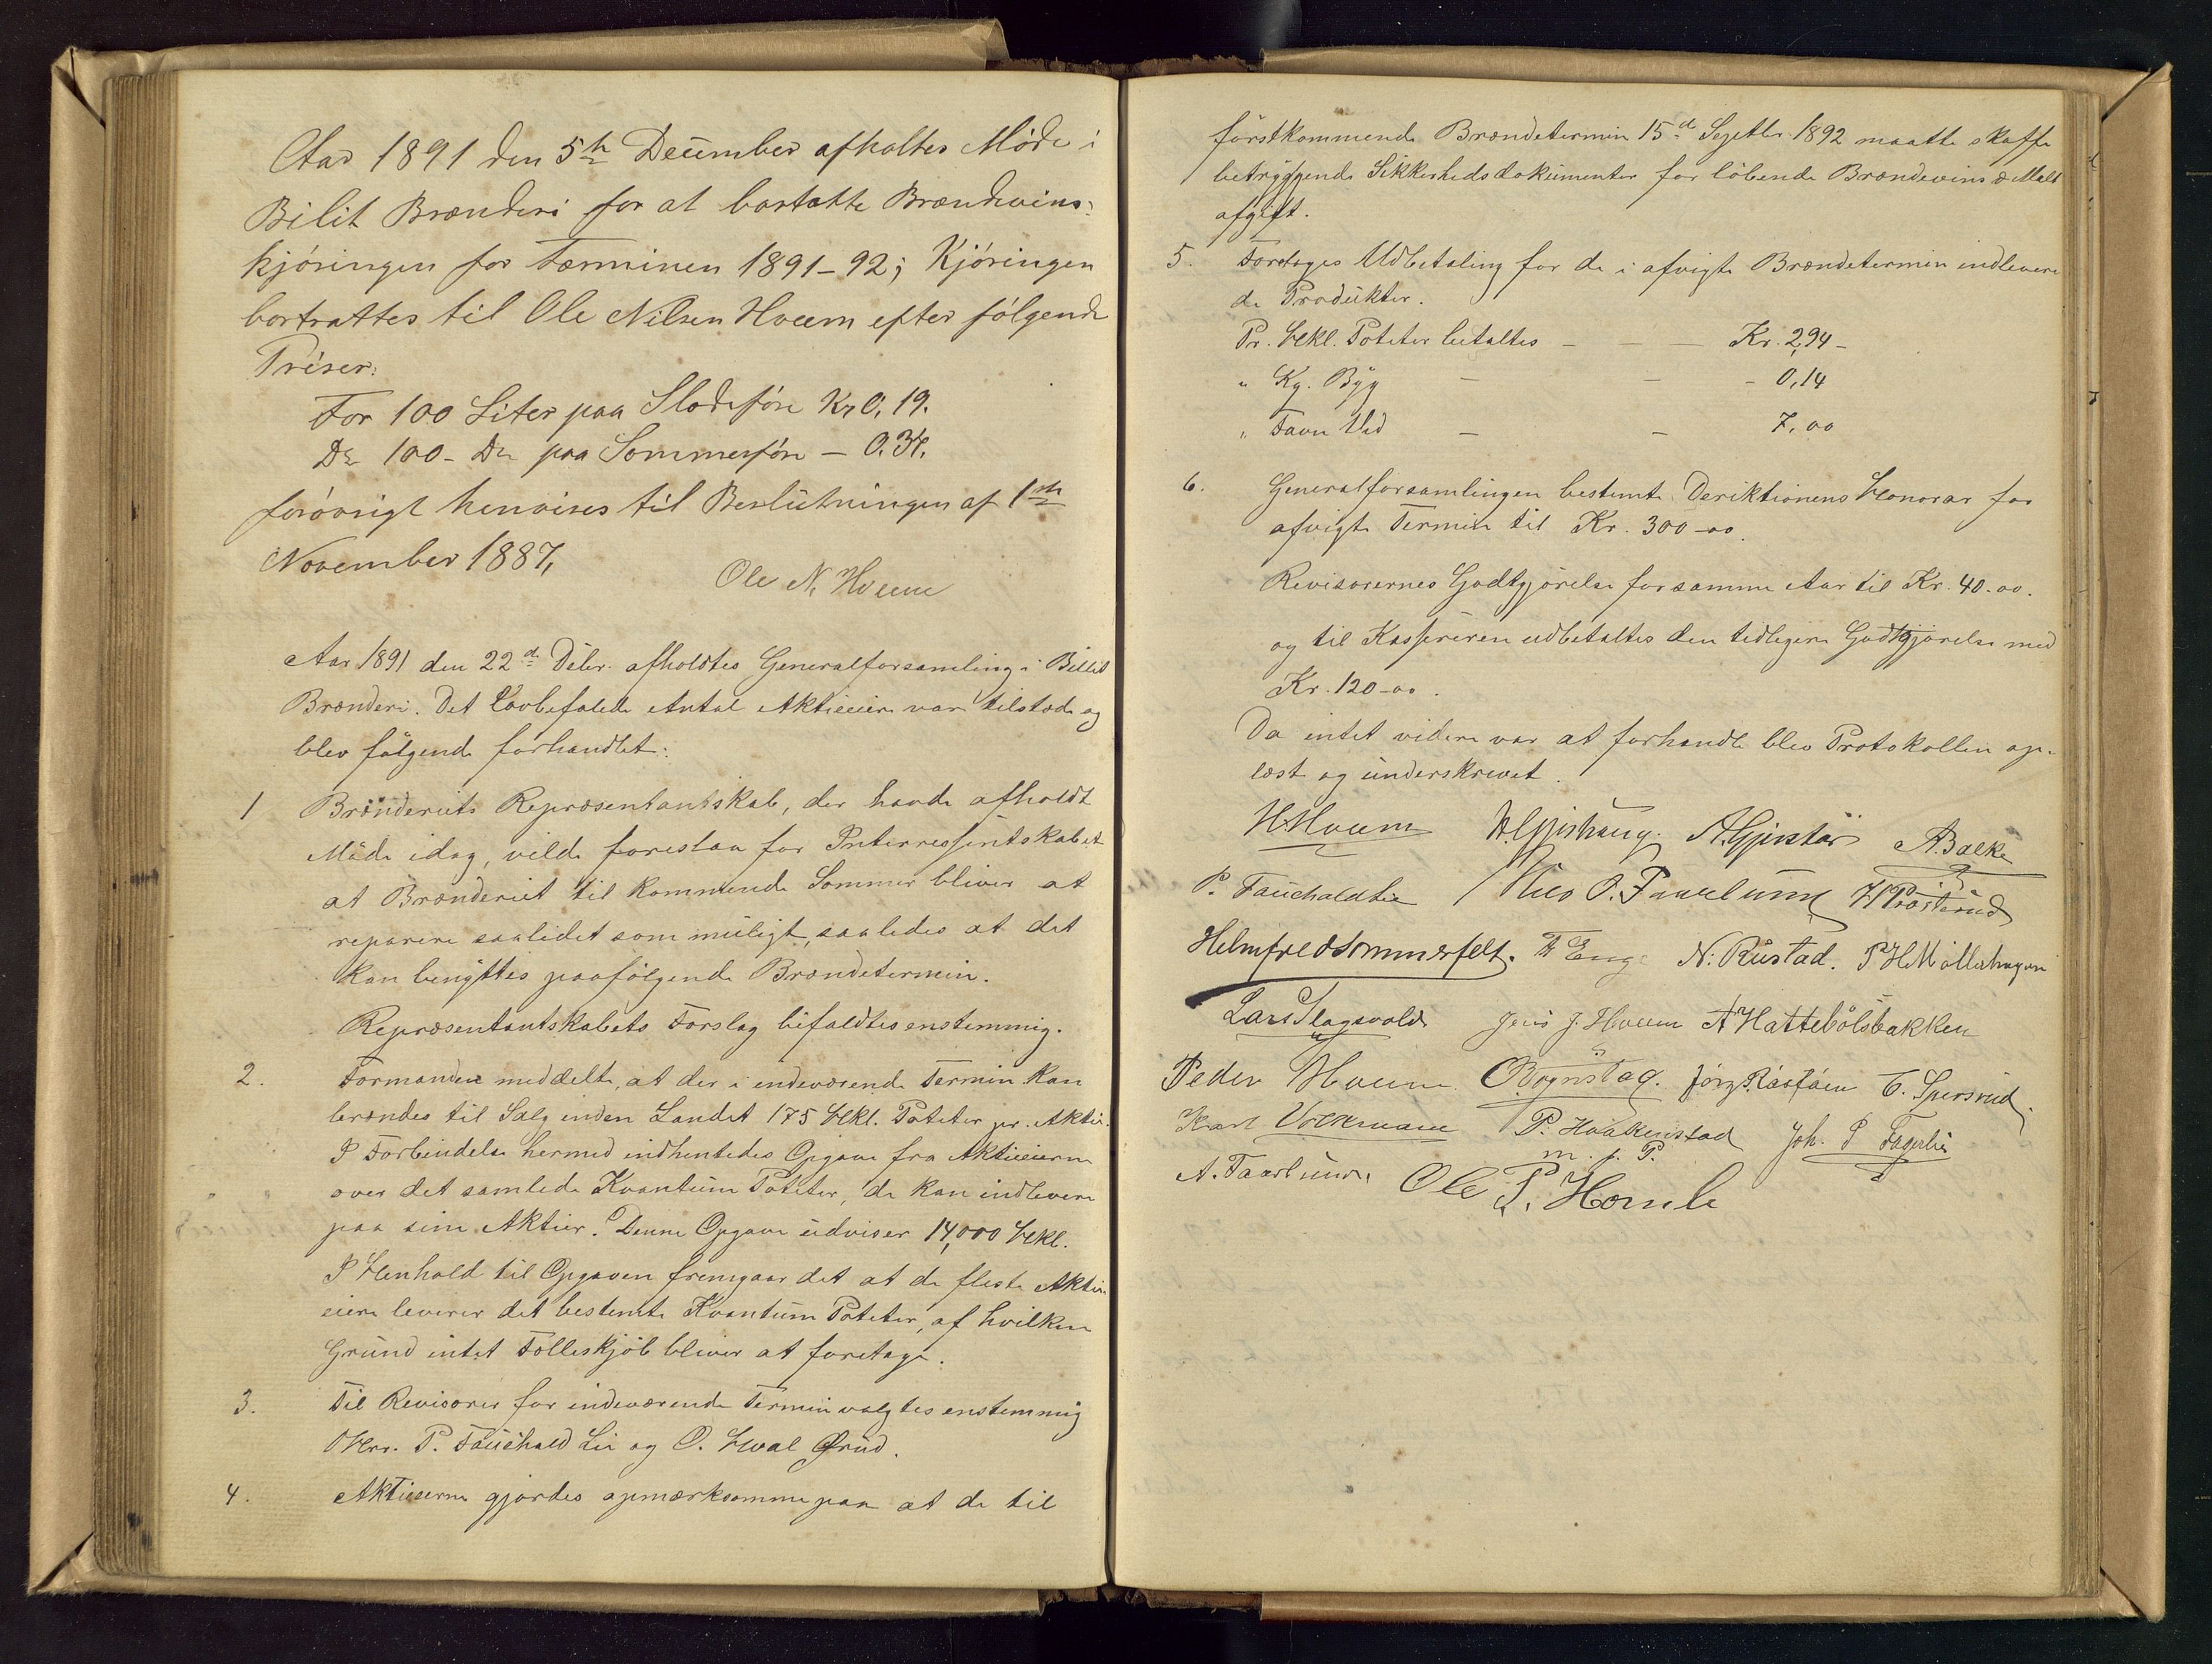 Aar 1891 den 5te December afholtes Møde i
Bilit Brænderi for at bortsætte Brændevins-
kjøringen for Terminen 1891-92; Kjøringen
bortsattes til Ole Nilsen Hveem efter følgende
Priser:
For 100 Liter paa Slædeføre Kr 0,19.
Do 100 - Do paa Sommerføre - 0.34.
forøvrigt henvises til Beslutningen af 1ste
November 1887,
Ole N. Hveem
Aar 1891 den 22de Dcbr. afholdtes Generalforsamling i Billit
Brænderi. Det Lovbefalede Antal Aktieeiere var tilstede og
blev følgende forhandlet:
1 Brænderiets Repræsentantskab, der havde afholdt
Møde idag, vilde foreslaa for Interressentskabet
at Brænderiet til kommende Sommer bliver at
reparere saalidet som muligt, saaledes at det
kan benyttes paafølgende Brændetermin.
Repræsentantskabets Forslag bifaldtes enstemmig.
2. Formanden meddelte, at der i indeværende Termin kan
brændes til Salg inden Landet 175 Hkl. Poteter pr. Aktie.
I Forbindelse hermed indhentedes Opgave fra Aktieeierne
over det samlede Kvantum Poteter, de kan indlevere
paa sine Aktier. Denne Opgave udviser 14,000 Hkl.
I Henhold til Opgaven fremgaar det at de fleste Aktie-
eiere leverer det bestemte Kvantum Poteter, af hvilken
Grund intet Fælleskjøb bliver at foretage.
3. Til Revisorer for indeværende Termin valgtes enstemmig
DHrr. P. Fauchald Lie og O. Hval Ørud.
4. Aktieeierne gjordes opmærksomme paa at de til
førstkommende Brændetermin 15de Septbr 1892 maatte skaffe
betryggende Sikkerhedsdokumenter for løbende Brændevins & Malt
afgift.
5. Foretoges Udbetaling for de i afvigte Brændetermin indlevere
de Produkter.
Pr. Hkl. Poteter betaltes - - - Kr. 2,94 -
" Kg. Byg - - - 0,14
" Favn Ved - - 7,00
6. Generalforsamlingen bestemte Deriktionens Honorar for
afvigte Termin til Kr. 300-00.
Revisorernes Godtgjørelse for samme Aar til Kr. 40.00.
og til Kassereren udbetaltes den tidligere Godtgjørelse med
Kr. 120-00.
Da intet videre var at forhandle blev Protokollen op-
læst og underskrevet.
H. Hveem A. Gjestvang A. Balke
P. Fauchald Lie O. Faarlund H Prøsterud
Helmfred Sommerfelt. F Enge N. Rustad. P H Møllerhagen
Lars Slagsvold Jens J. Hveem A Hattebølsbakken
Peder Hveem O Bøgnstad. C. Spersrud
Karl Volkmann P. Haakenstad Joh. P Fagerlie
m. p. P.
A. Faarlund Ole P. Homle